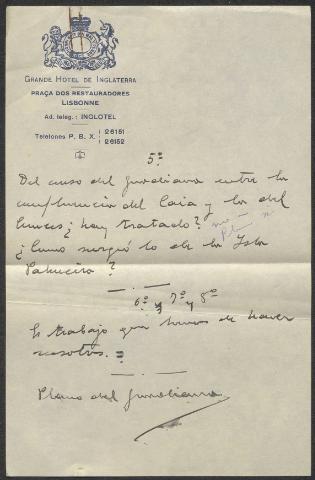 GRANDE HOTEL DE INGLATERRA
PRAÇA DOS RESTAURADORES
LISBONNE
Ad. teleg.: INGLOTEL
Telefones P. B. X. 26151
26152
5º
Del curso del Guadiana entre la
confluencia del Caia y la del
Cuncos ¿hay tratado? no
¿Como surgió lo de la Isla
?
6º y 7º y 8º
Es trabajo que hemos de hacer
nosotros. =
Plano del Guadiana